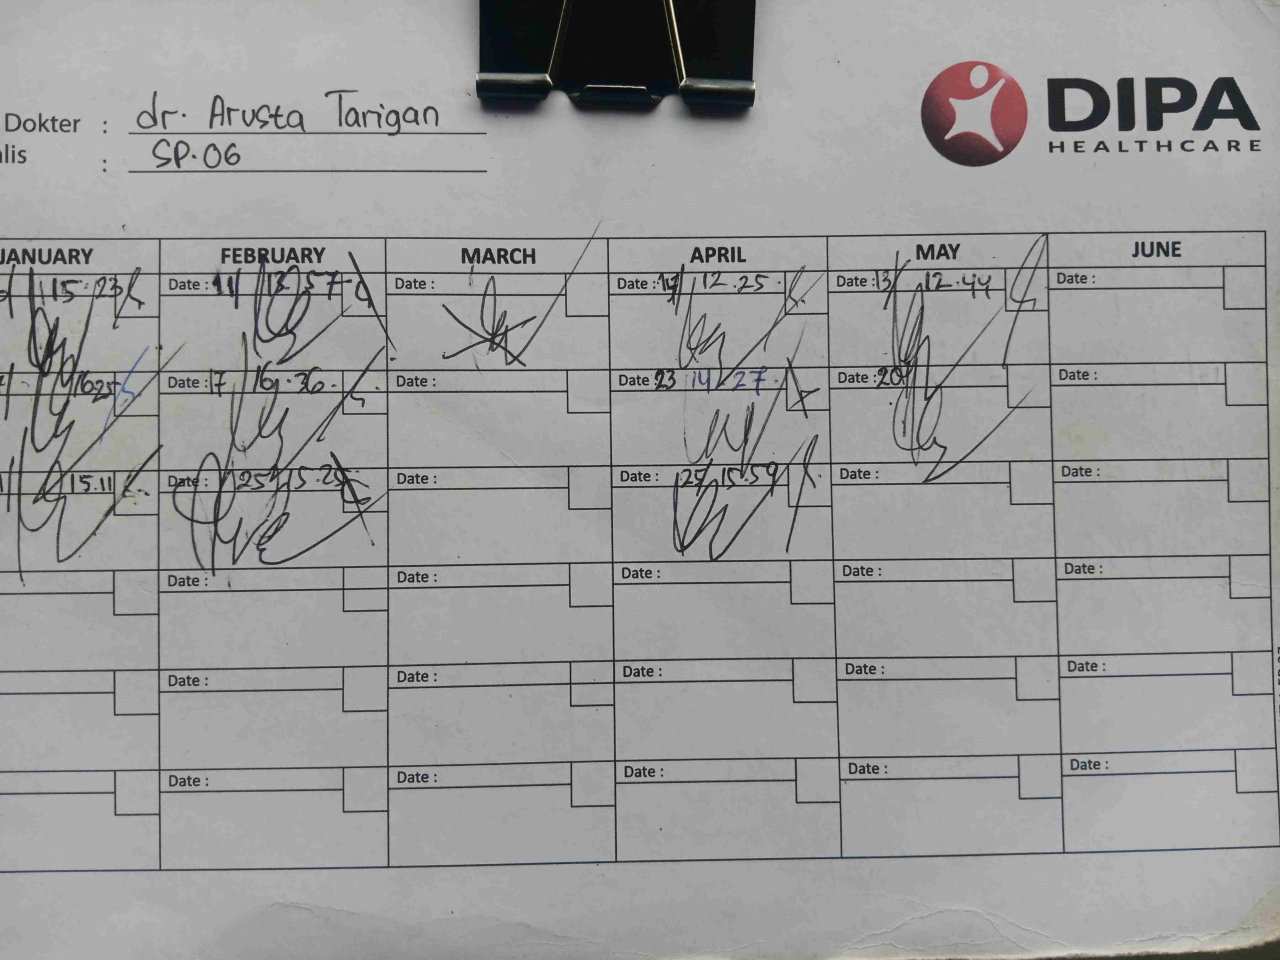 Dokter : dr. Arusta Tarigan
alis : SP.06
DIPA
HEALTHCARE
JANUARY FEBRUARY MARCH APRIL MAY JUNE
15.23 Date : 11 13.57 Date : Date : 17 12.25 Date : 13 12.44 Date :
16.25 Date : 17 16.36 Date : Date 23 14.27 Date : 20 Date :
15.11 Date : 25 15.25 Date : Date : 25 15.59 Date : Date :
Date : Date : Date : Date : Date :
Date : Date : Date : Date : Date :
Date : Date : Date : Date : Date :